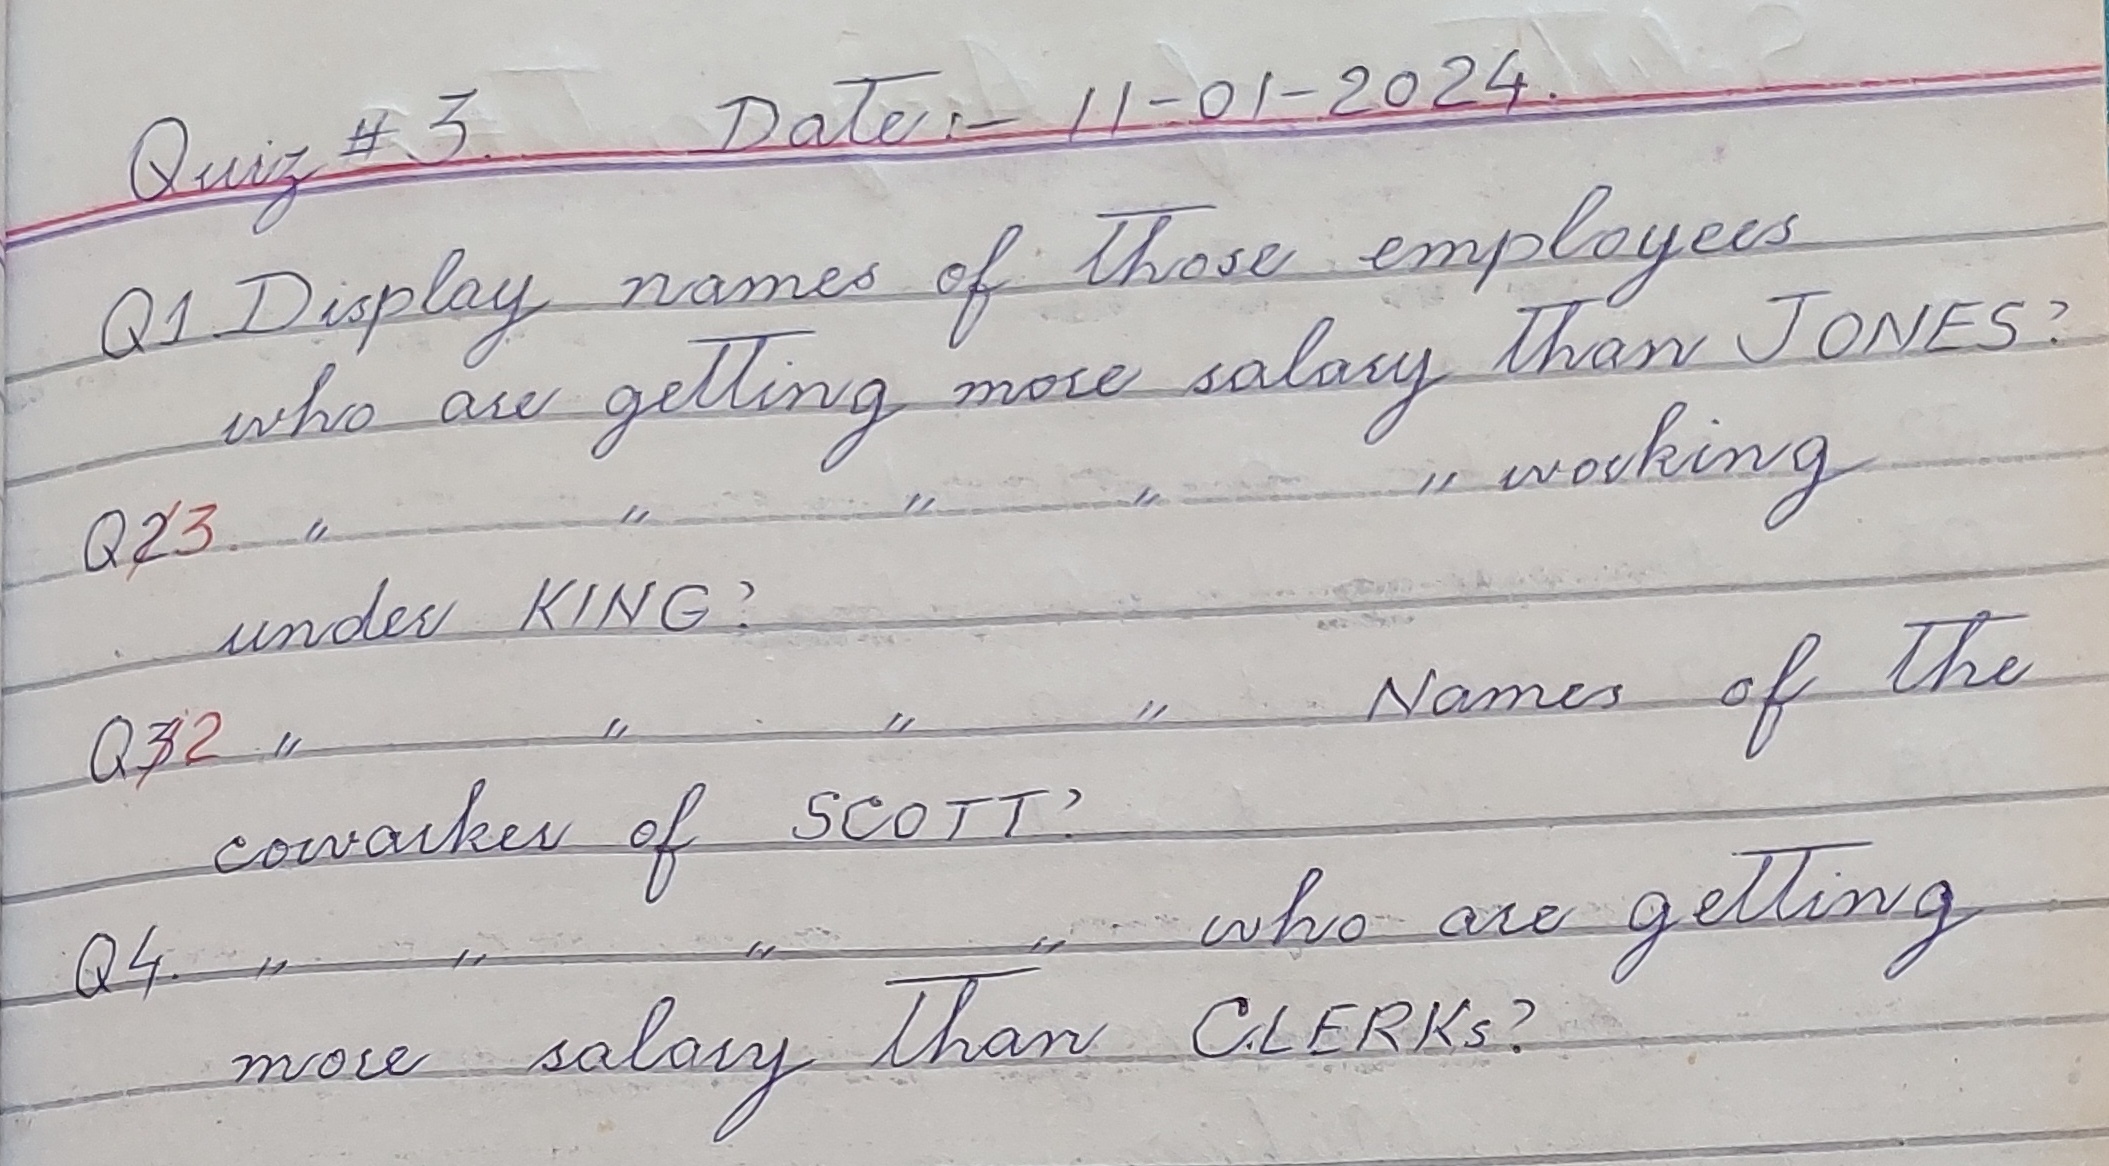 Quiz # 3 Date:- 11-01-2024.
Q1. Display names of those employees
who are getting more salary than JONES?
Q23. " " " " " working
under KING?
Q32 " " " " Names of the
coworker of SCOTT?
Q4. " " " " who are getting
more salary than CLERKs?